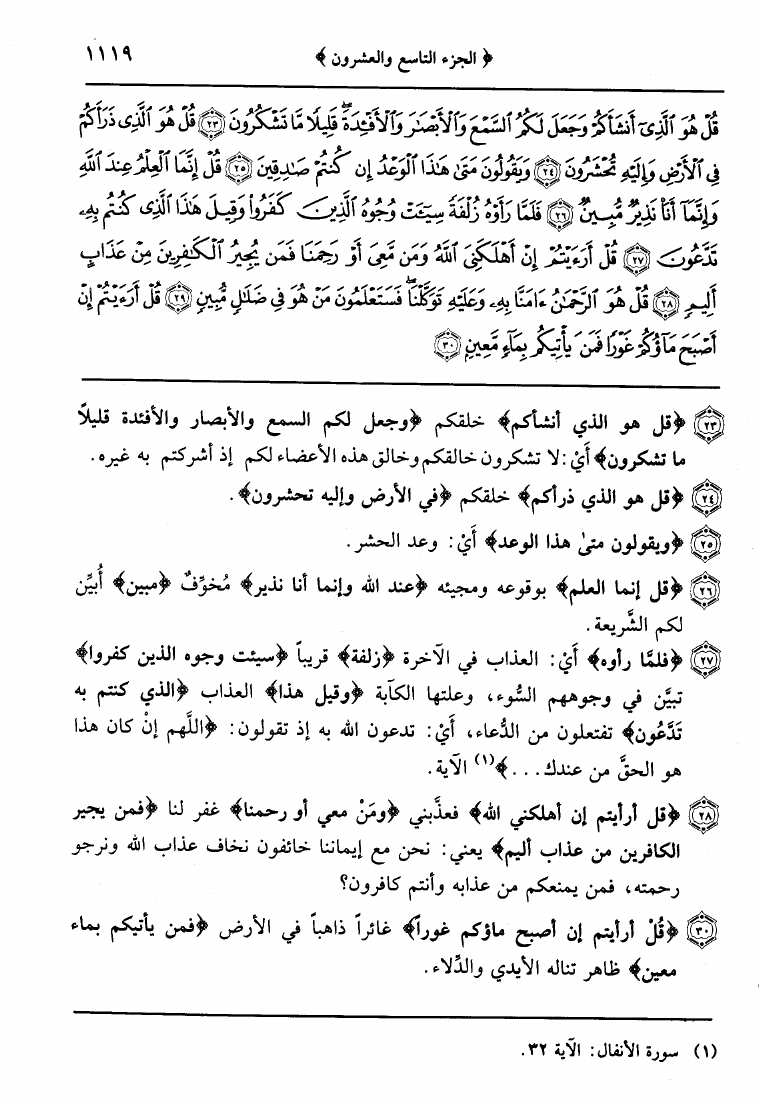 ﴿ الجزء التاسع والعشرون ﴾ ١١١٩
قُلْ هُوَ ٱلَّذِىٓ أَنشَأَكُمْ وَجَعَلَ لَكُمُ ٱلسَّمْعَ وَٱلْأَبْصَٰرَ وَٱلْأَفْـِٔدَةَۖ قَلِيلًا مَّا تَشْكُرُونَ ٢٣ قُلْ هُوَ ٱلَّذِى ذَرَأَكُمْ
فِى ٱلْأَرْضِ وَإِلَيْهِ تُحْشَرُونَ ٢٤ وَيَقُولُونَ مَتَىٰ هَٰذَا ٱلْوَعْدُ إِن كُنتُمْ صَٰدِقِينَ ٢٥ قُلْ إِنَّمَا ٱلْعِلْمُ عِندَ ٱللَّهِ
وَإِنَّمَآ أَنَا۠ نَذِيرٌ مُّبِينٌ ٢٦ فَلَمَّا رَأَوْهُ زُلْفَةً سِيٓـَٔتْ وُجُوهُ ٱلَّذِينَ كَفَرُوا۟ وَقِيلَ هَٰذَا ٱلَّذِى كُنتُم بِهِۦ
تَدَّعُونَ ٢٧ قُلْ أَرَءَيْتُمْ إِنْ أَهْلَكَنِىَ ٱللَّهُ وَمَن مَّعِىَ أَوْ رَحِمَنَا فَمَن يُجِيرُ ٱلْكَٰفِرِينَ مِنْ عَذَابٍ
أَلِيمٍ ٢٨ قُلْ هُوَ ٱلرَّحْمَٰنُ ءَامَنَّا بِهِۦ وَعَلَيْهِ تَوَكَّلْنَاۖ فَسَتَعْلَمُونَ مَنْ هُوَ فِى ضَلَٰلٍ مُّبِينٍ ٢٩ قُلْ أَرَءَيْتُمْ إِنْ
أَصْبَحَ مَآؤُكُمْ غَوْرًا فَمَن يَأْتِيكُم بِمَآءٍ مَّعِينٍ ٣٠
٢٣ ﴿قل هو الذي أنشأكم﴾ خلقكم ﴿وجعل لكم السمع والأبصار والأفئدة قليلاً
ما تشكرون﴾ أيْ: لا تشكرون خالقكم وخالق هذه الأعضاء لكم إذ أشركتم به غيره.
٢٤ ﴿قل هو الذي ذرأكم﴾ خلقكم ﴿في الأرض وإليه تحشرون﴾.
٢٥ ﴿ويقولون متىٰ هذا الوعد﴾ أيْ: وعد الحشر.
٢٦ ﴿قل إنما العلم﴾ بوقوعه ومجيئه ﴿عند الله وإنما أنا نذير﴾ مُخوِّفٌ ﴿مبين﴾ أُبيِّن
لكم الشَّريعة.
٢٧ ﴿فلمَّا رأوه﴾ أيْ: العذاب في الآخرة ﴿زلفة﴾ قريباً ﴿سيئت وجوه الذين كفروا﴾
تبيَّن في وجوههم السُّوء، وعلتها الكآبة ﴿وقيل هذا﴾ العذاب ﴿الذي كنتم به
تَدَّعُون﴾ تفتعلون من الدُّعاء، أيْ: تدعون الله به إذ تقولون: ﴿اللَّهم إنْ كان هذا
هو الحقَّ من عندك...﴾(١) الآية.
٢٨ ﴿قل أرأيتم إن أهلكني الله﴾ فعذَّبني ﴿ومَنْ معي أو رحمنا﴾ غفر لنا ﴿فمن يجير
الكافرين من عذاب أليم﴾ يعني: نحن مع إيماننا خائفون نخاف عذاب الله ونرجو
رحمته، فمن يمنعكم من عذابه وأنتم كافرون؟
٣٠ ﴿قُلْ أرأيتم إن أصبح ماؤكم غوراً﴾ غائراً ذاهباً في الأرض ﴿فمن يأتيكم بماء
معين﴾ ظاهر تناله الأيدي والدِّلاء.
(١) سورة الأنفال: الآية ٣٢.